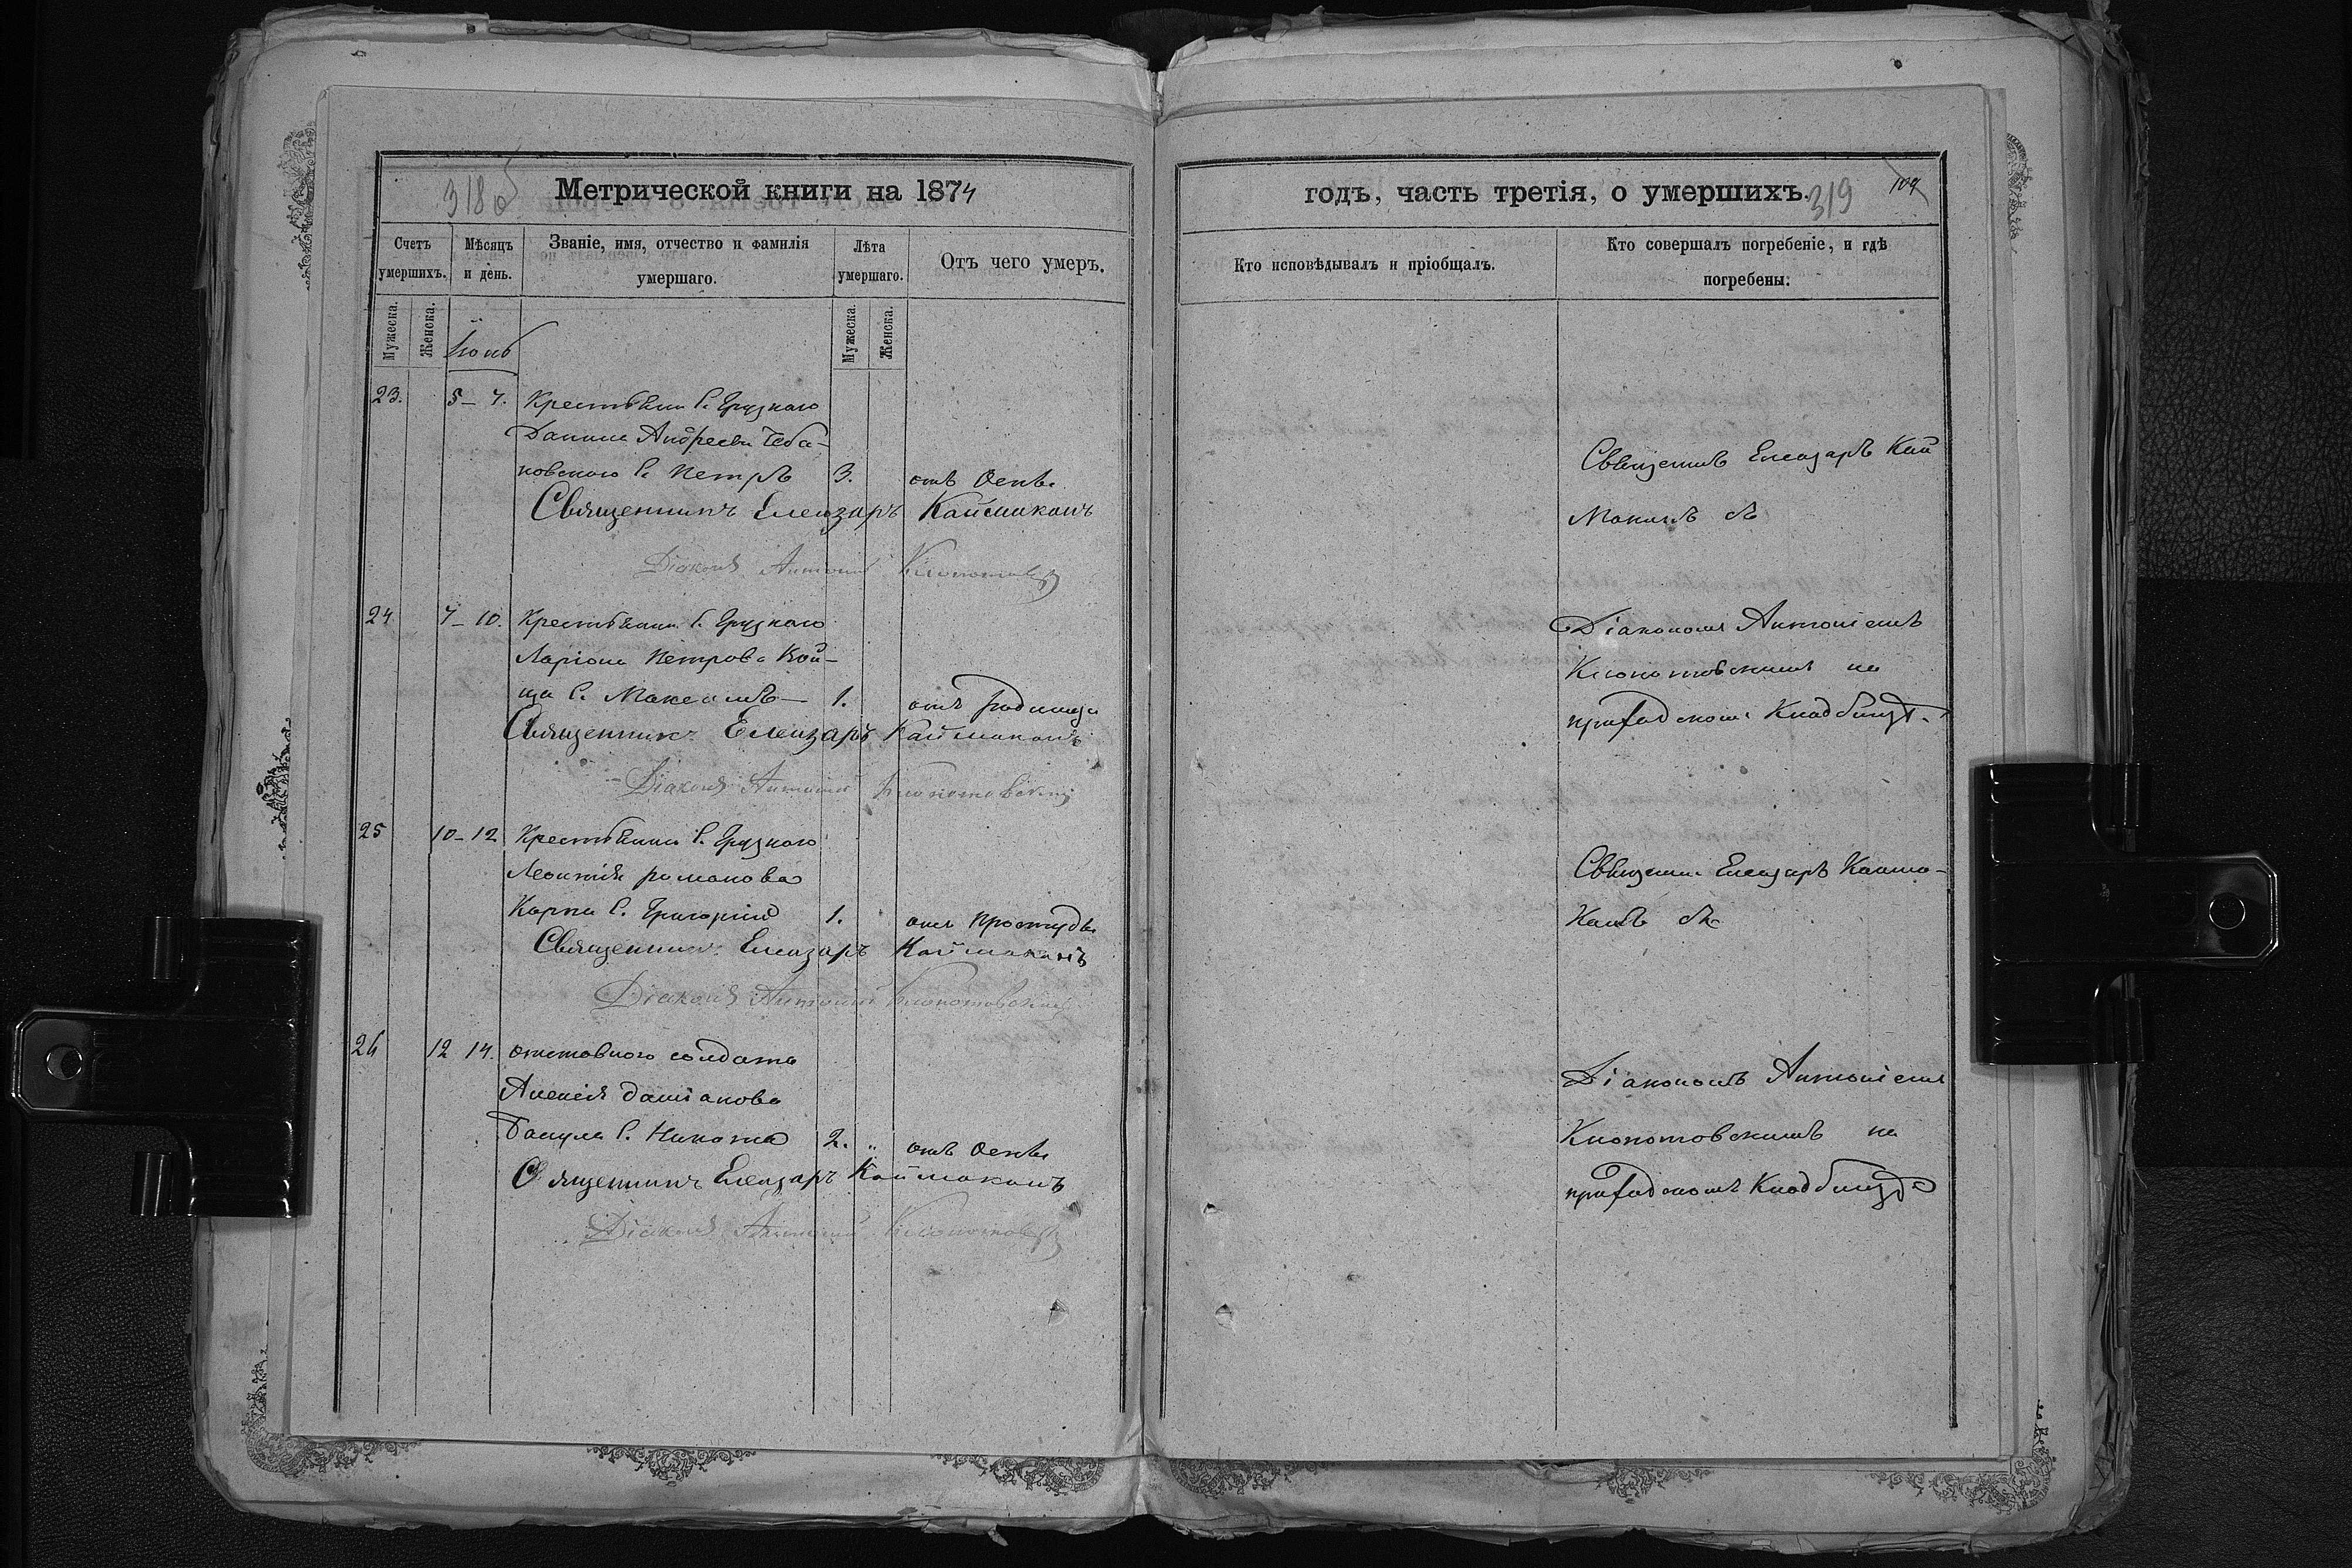 318 об
Метрической книги на 1874
Счетъ умершихъ.
Мѣсяцъ и день.
Званіе, имя, отчество и фамилія умершаго.
Лѣта умершаго.
Отъ чего умеръ.
Мужеска.
Женска.
Мужеска.
Женска.
23.
5 – 7.
Крестьянина С. Грузкаго
Данила Андреева Чеба-
новскаго С. Петръ
3.
отъ Оспы
Священникъ Елеазаръ Каймаканъ
Діаконъ Антоній Клопотовскій
24
7 – 10.
Крестьянина С. Грузкаго
Ларіона Петрова Кой-
С. Максимъ
1.
отъ Родимца
Священникъ Елеазаръ Каймаканъ
Діаконъ Антоній Клопотовскій
25
10 – 12
Крестьянина С. Грузкаго
Леонтія романова
Карпа С. Григорій
1.
отъ Простуды
Священникъ Елеазаръ Каймаканъ
Діаконъ Антоній Клопотовскій
26
12 14.
отставного солдата
Алексія даміанова
С. Никита
2. „
отъ Оспы
Священникъ Елеазаръ Каймаканъ
Діаконъ Антоній Клопотовскій
годъ, часть третія, о умершихъ.
319
109
Кто исповѣдывалъ и пріобщалъ.
Кто совершалъ погребеніе, и гдѣ
погребены:
Священникъ Елеазаръ Кай
маканъ съ
Діакономъ Антоніемъ
Клопотовскимъ на
приходскомъ Кладбищѣ.
Священникъ Елеазаръ Кайма-
канъ съ
Діакономъ Антоніемъ
Клопотовскимъ на
приходскомъ Кладбищѣ